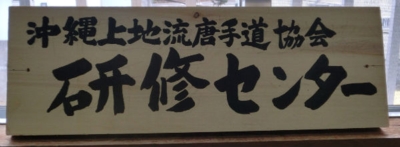 沖縄上地流唐手道協会
研修センター